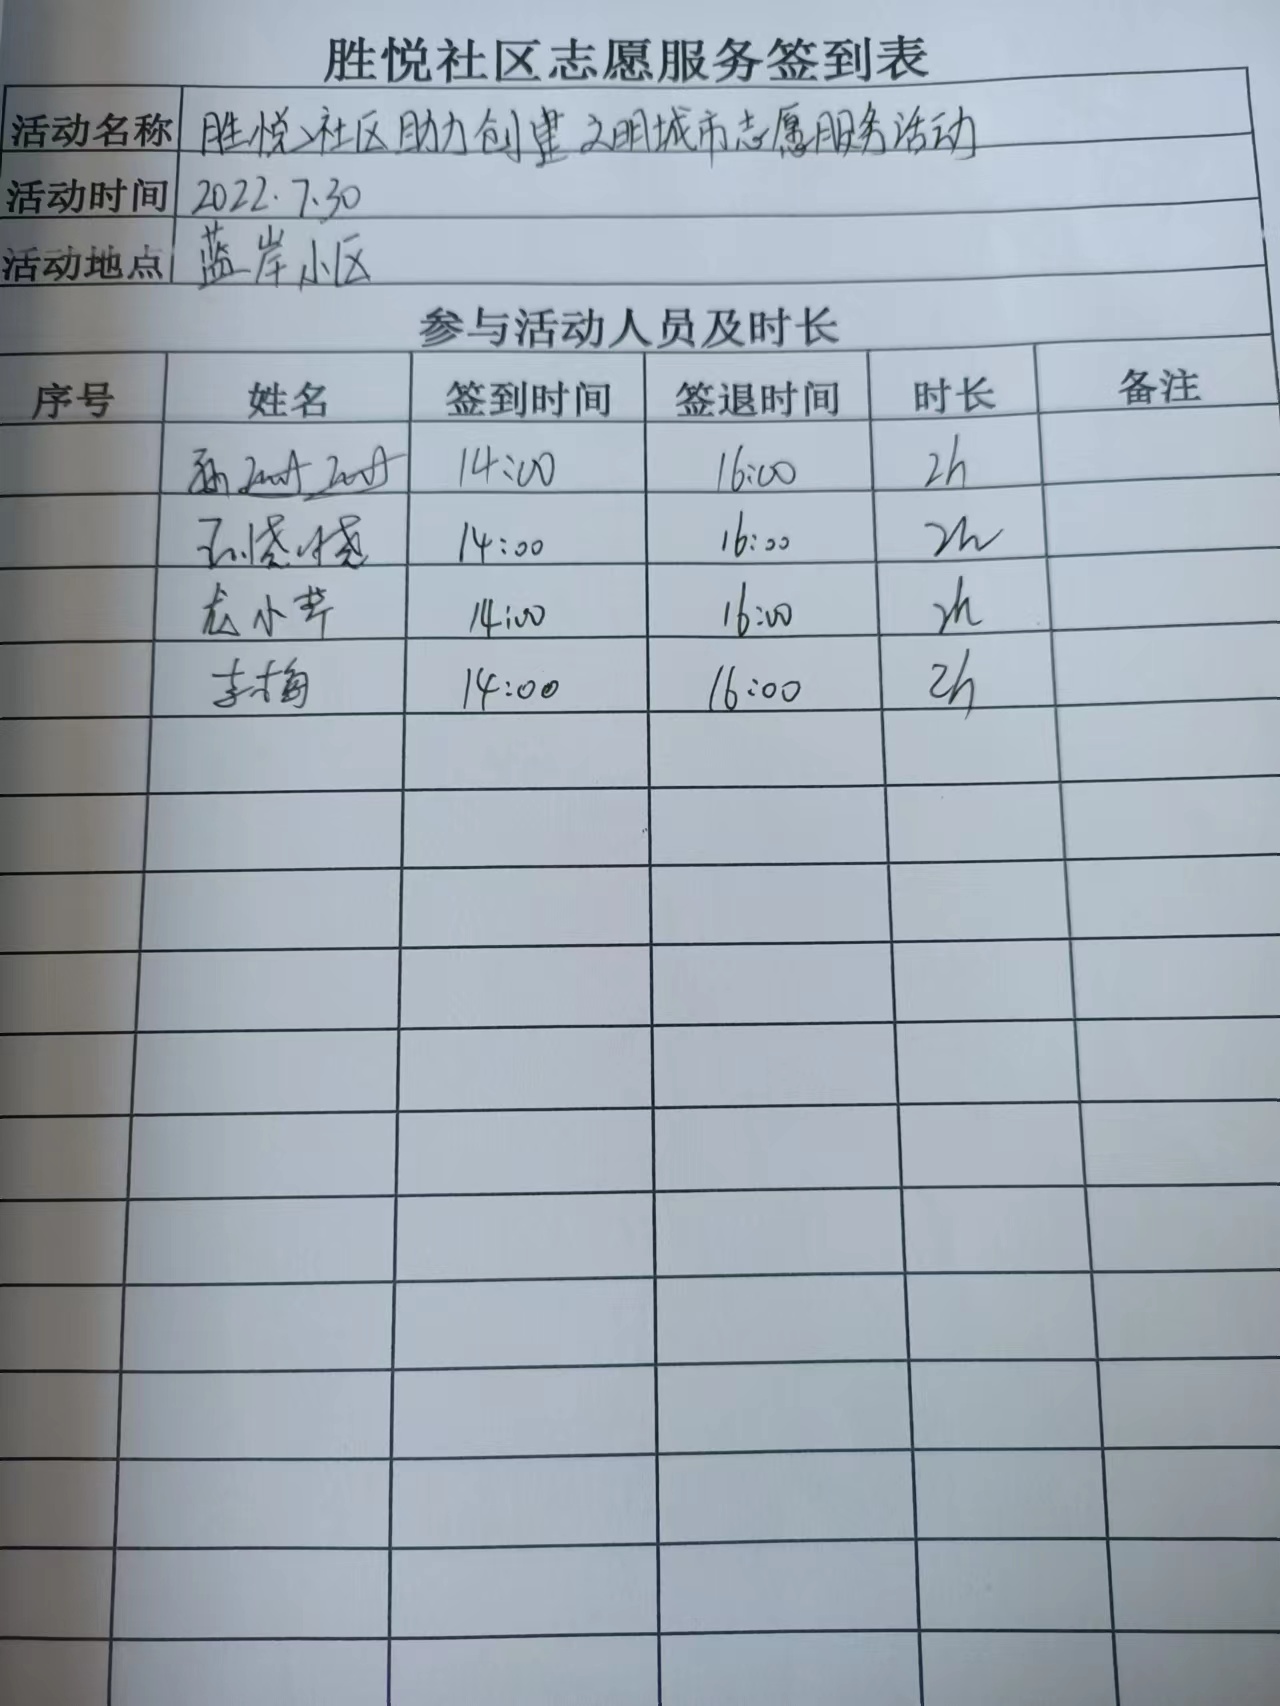 胜悦社区志愿服务签到表
活动名称 胜悦社区助力创建文明城市志愿服务活动
活动时间 2022.7.30
活动地点 蓝岸小区
参与活动人员及时长
序号 姓名 签到时间 签退时间 时长 备注
14:00 16:00 2h
14:00 16:00 2h
龙小芹 14:00 16:00 2h
李梅 14:00 16:00 2h